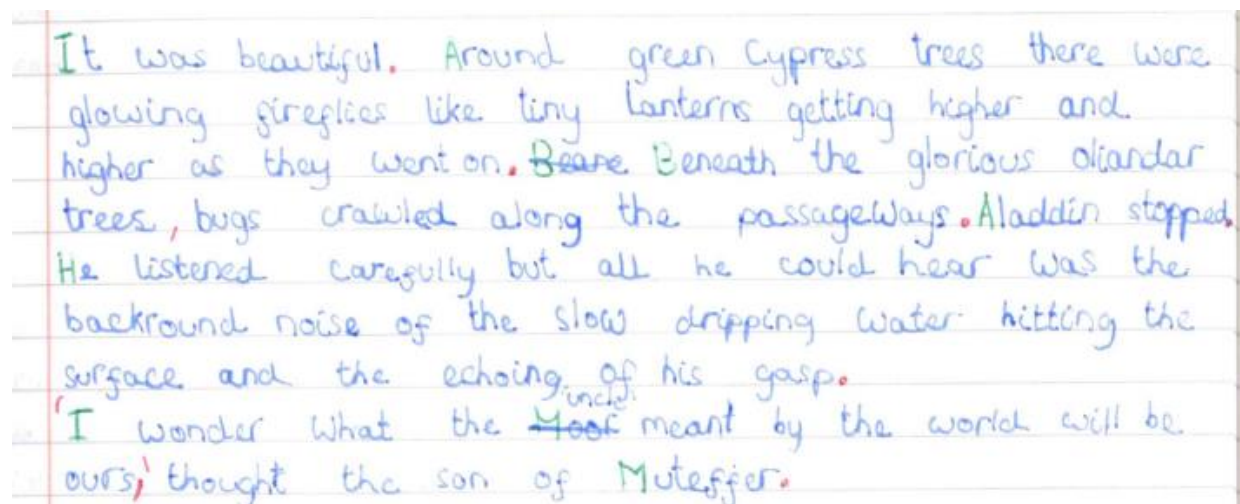 It was beautiful. Around green Cypress trees there were
glowing fireflies like tiny lanterns getting higher and
higher as they went on. Beane Beneath the glorious oliandar
trees, bugs crawled along the passageways. Aladdin stopped.
He listened carefully but all he could hear was the
backround noise of the slow dripping water hitting the
surface and the echoing of his gasp.
'I wonder what the Moor uncle meant by the world will be
ours,' thought the son of Muteffer.